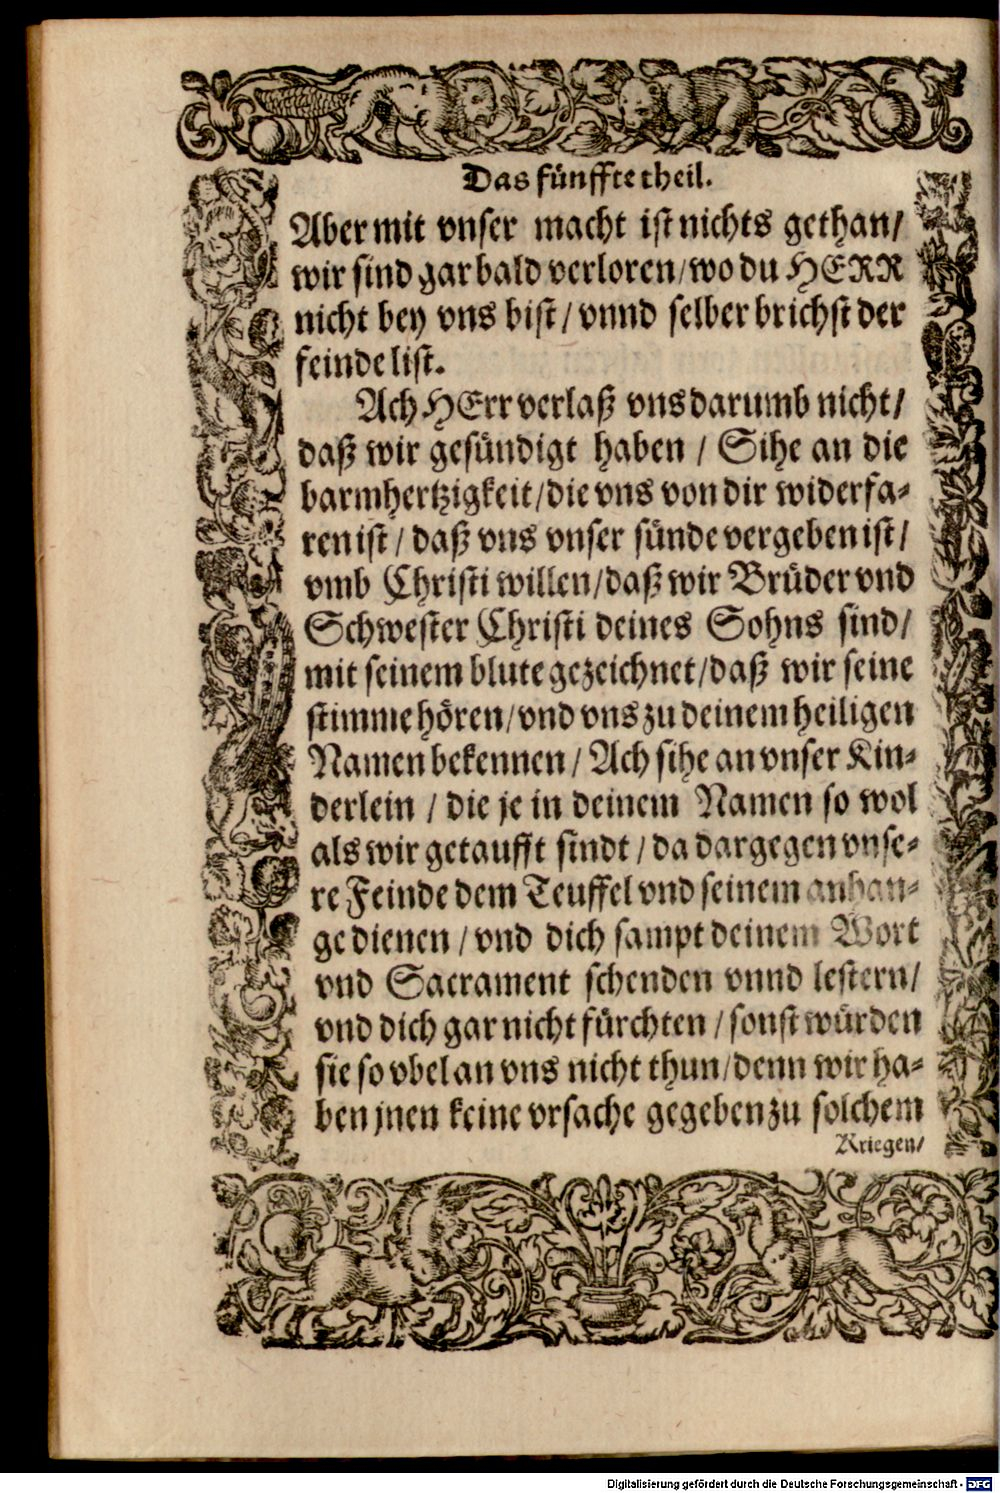 Das fünffte theil.
Aber mit vnser macht ist nichts gethan/
wir sind gar bald verloren/wo du HERR
nicht bey vns bist/ vnnd selber brichst der
feinde list.
Ach HErr verlaß vns darumb nicht/
daß wir gesündigt haben / Sihe an die
barmhertzigkeit/die vns von dir widerfa-
ren ist/ daß vns vnser sünde vergeben ist/
vmb Christi willen/daß wir Brüder vnd
Schwester Christi deines Sohns sind/
mit seinem blute gezeichnet/daß wir seine
stimme hören/vnd vns zu deinem heiligen
Namen bekennen/ Ach sihe an vnser Kin-
derlein / die je in deinem Namen so wol
als wir getaufft sindt/ da dargegen vnse-
re Feinde dem Teuffel vnd seinem anhan-
ge dienen/ vnd dich sampt deinem Wort
vnd Sacrament schenden vnnd lestern/
vnd dich gar nicht fürchten / sonst würden
sie so vbel an vns nicht thun/denn wir ha-
ben jnen keine vrsache gegeben zu solchem
Kriegen/
Digitalisierung gefördert durch die Deutsche Forschungsgemeinschaft - DFG